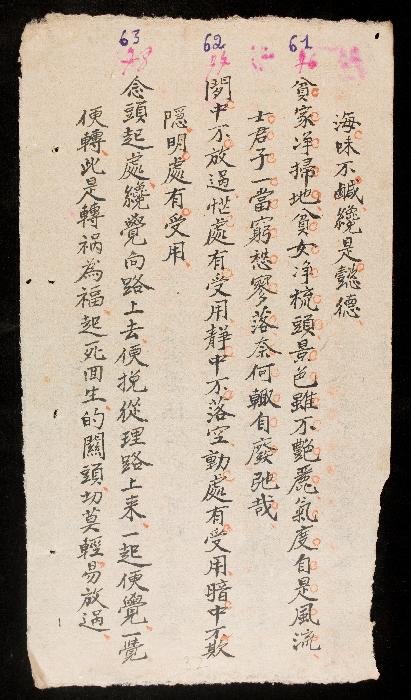 海味不鹹纔是懿德
61
貧家淨掃地貧女淨梳頭景色雖不艷麗氣度自是風流
士君子一當窮愁寥落奈何輒自廢弛哉
62
閑中不放過忙處有受用静中不落空動處有受用暗中不欺
隱明處有受用
63
念頭起處纔覺向路上去便挽從理路上来一起便覺一覺
便轉此是轉祸為福起死回生的關頭切莫輕易放過